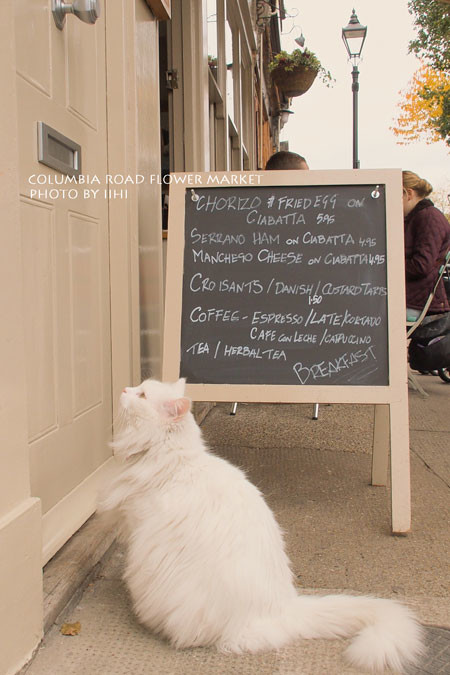 COLUMBIA ROAD FLOWER MARKET
PHOTO BY IIHI
CHORIZO & FRIED EGG ON
CIABATTA 5.95
SERRANO HAM ON CIABATTA 4.95
MANCHEGO CHEESE ON CIABATTA 4.95
CROISANTS / DANISH / CUSTARD TARTS
1.50
COFFEE - ESPRESSO / LATE / KORTADO
CAFE CON LECHE / CAPPUCINO
TEA / HERBAL TEA
BREAKFAST